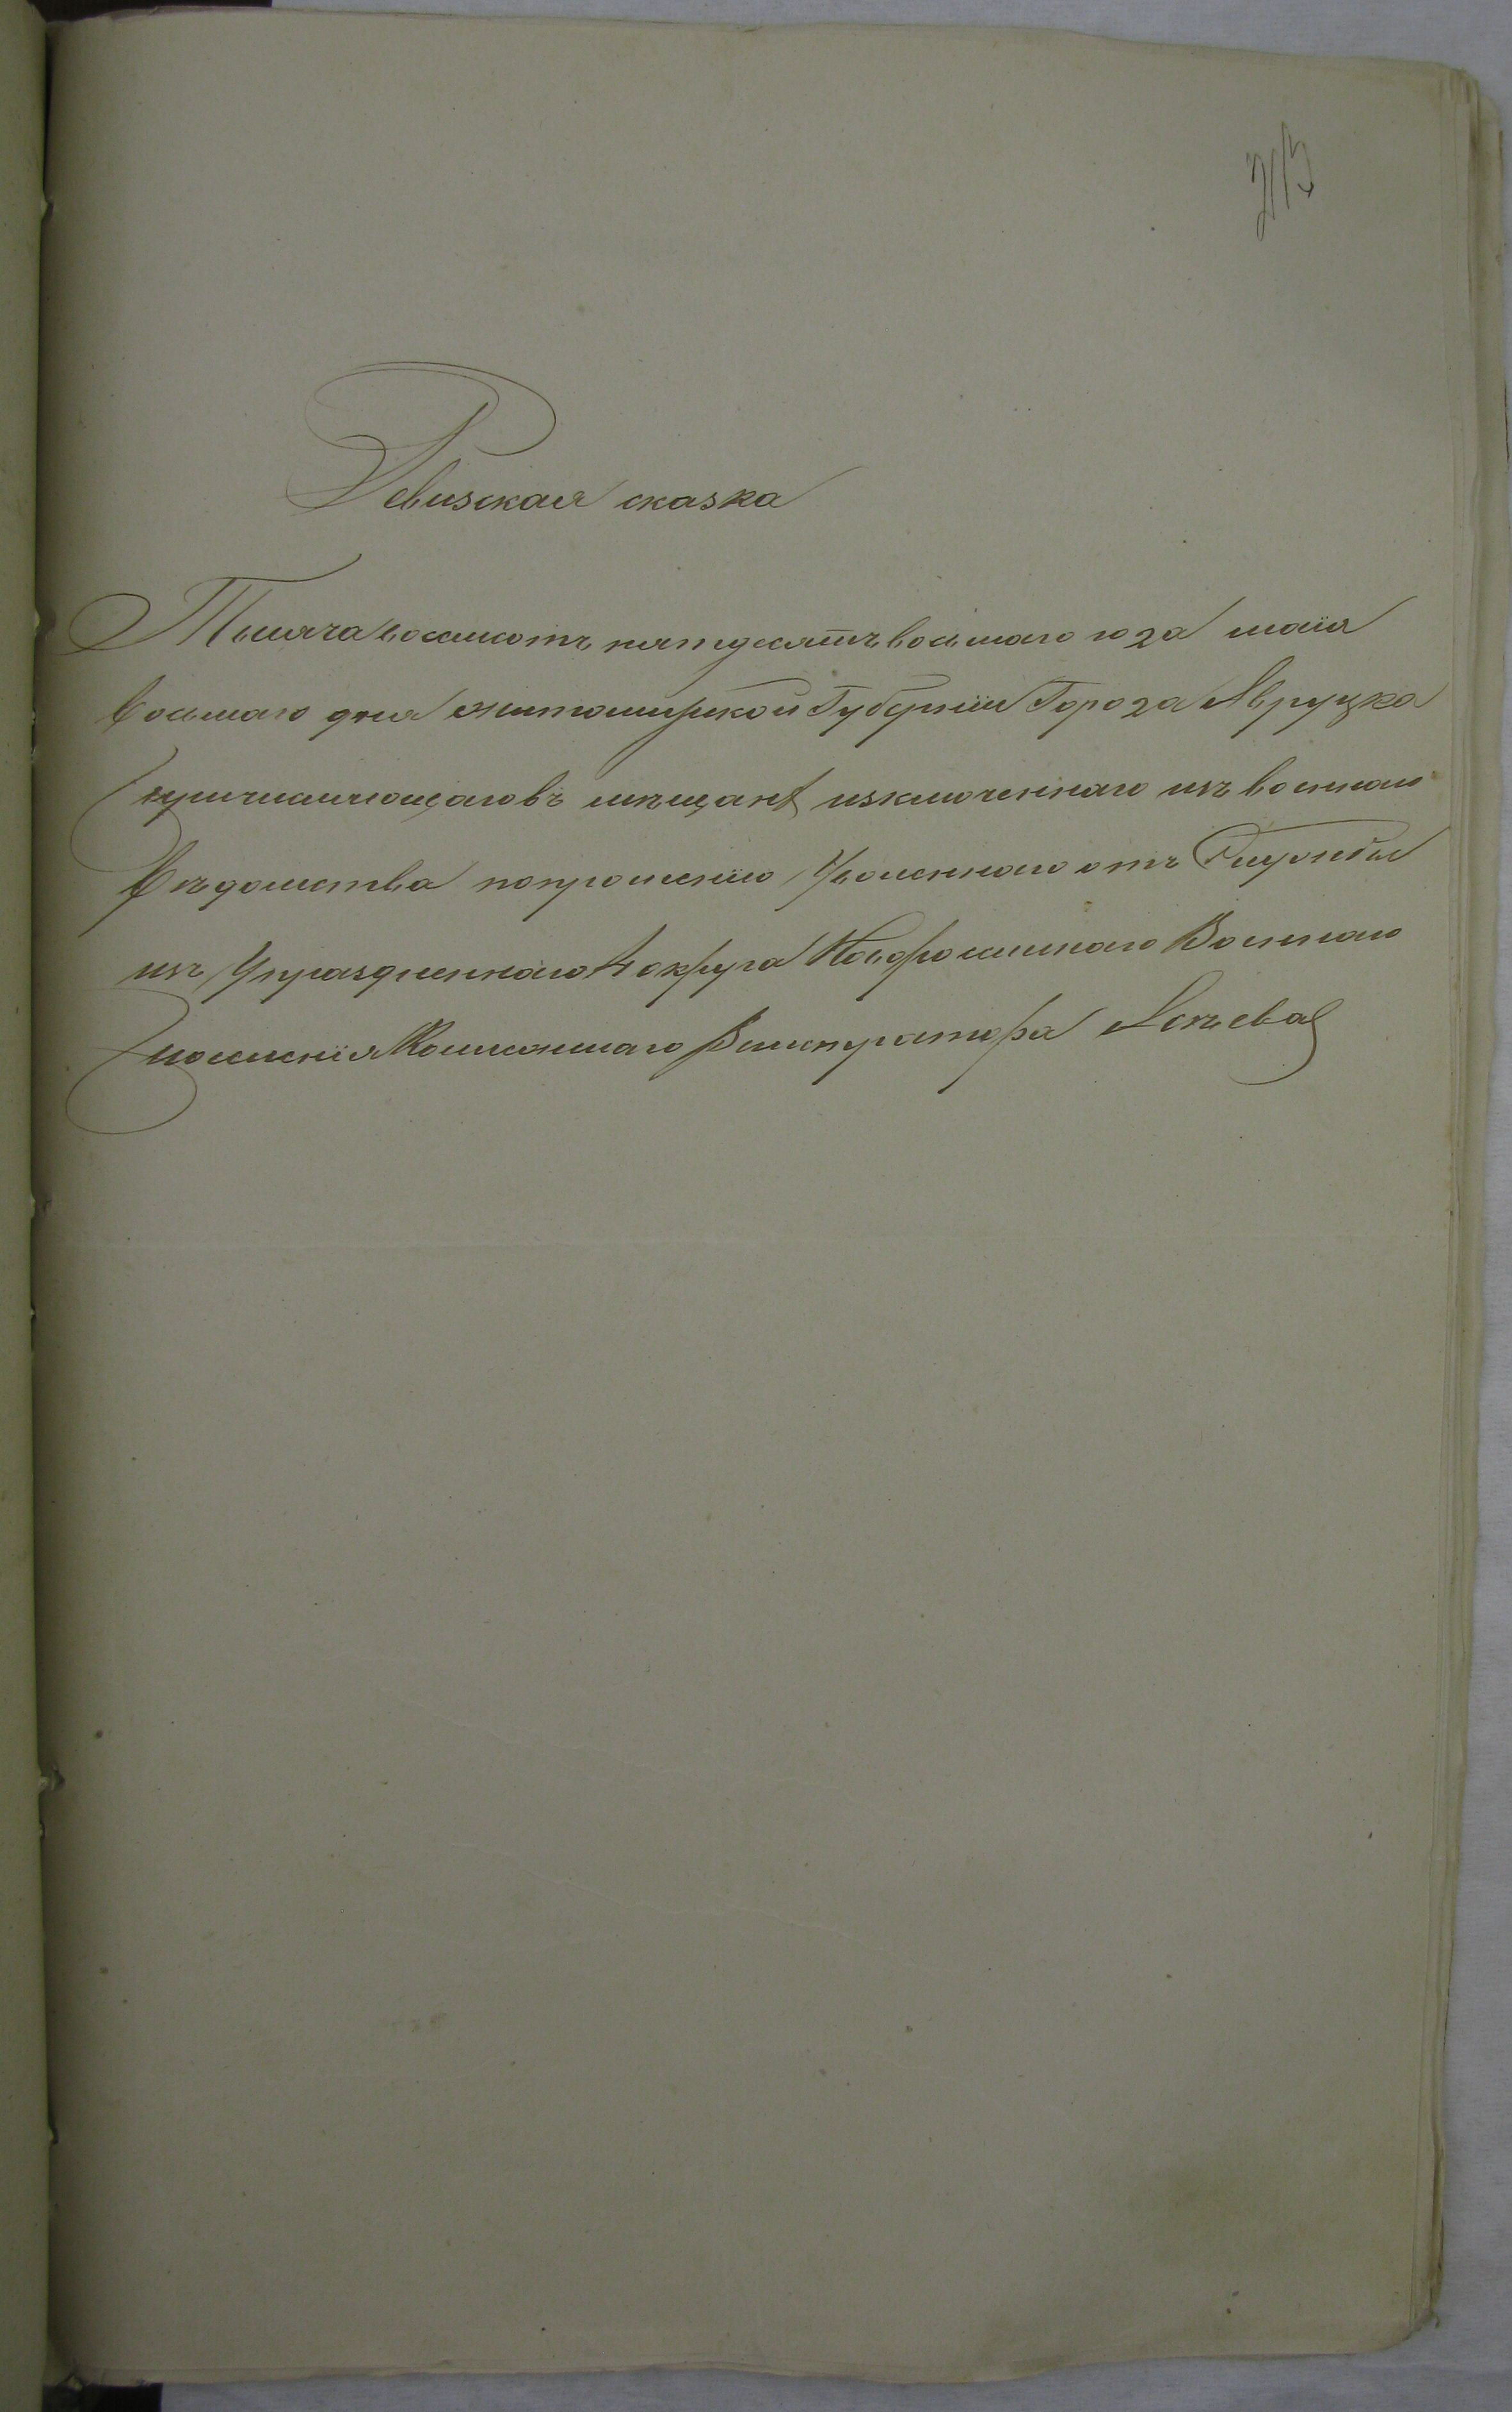 213
Ревизская сказка
Тысяча восемсотъ пятдесятъ восьмаго года маія
восьмаго дня житомирской Губерніи Города Авруцка
причисляющагося въ мещане изключеннаго изъ военнаго
ведомства попрошенію Уволеннаго отъ Службы
изъ Упраздненнаго 4 округа Новороссийскаго Военнаго
поселенія Колежскаго Регистратора